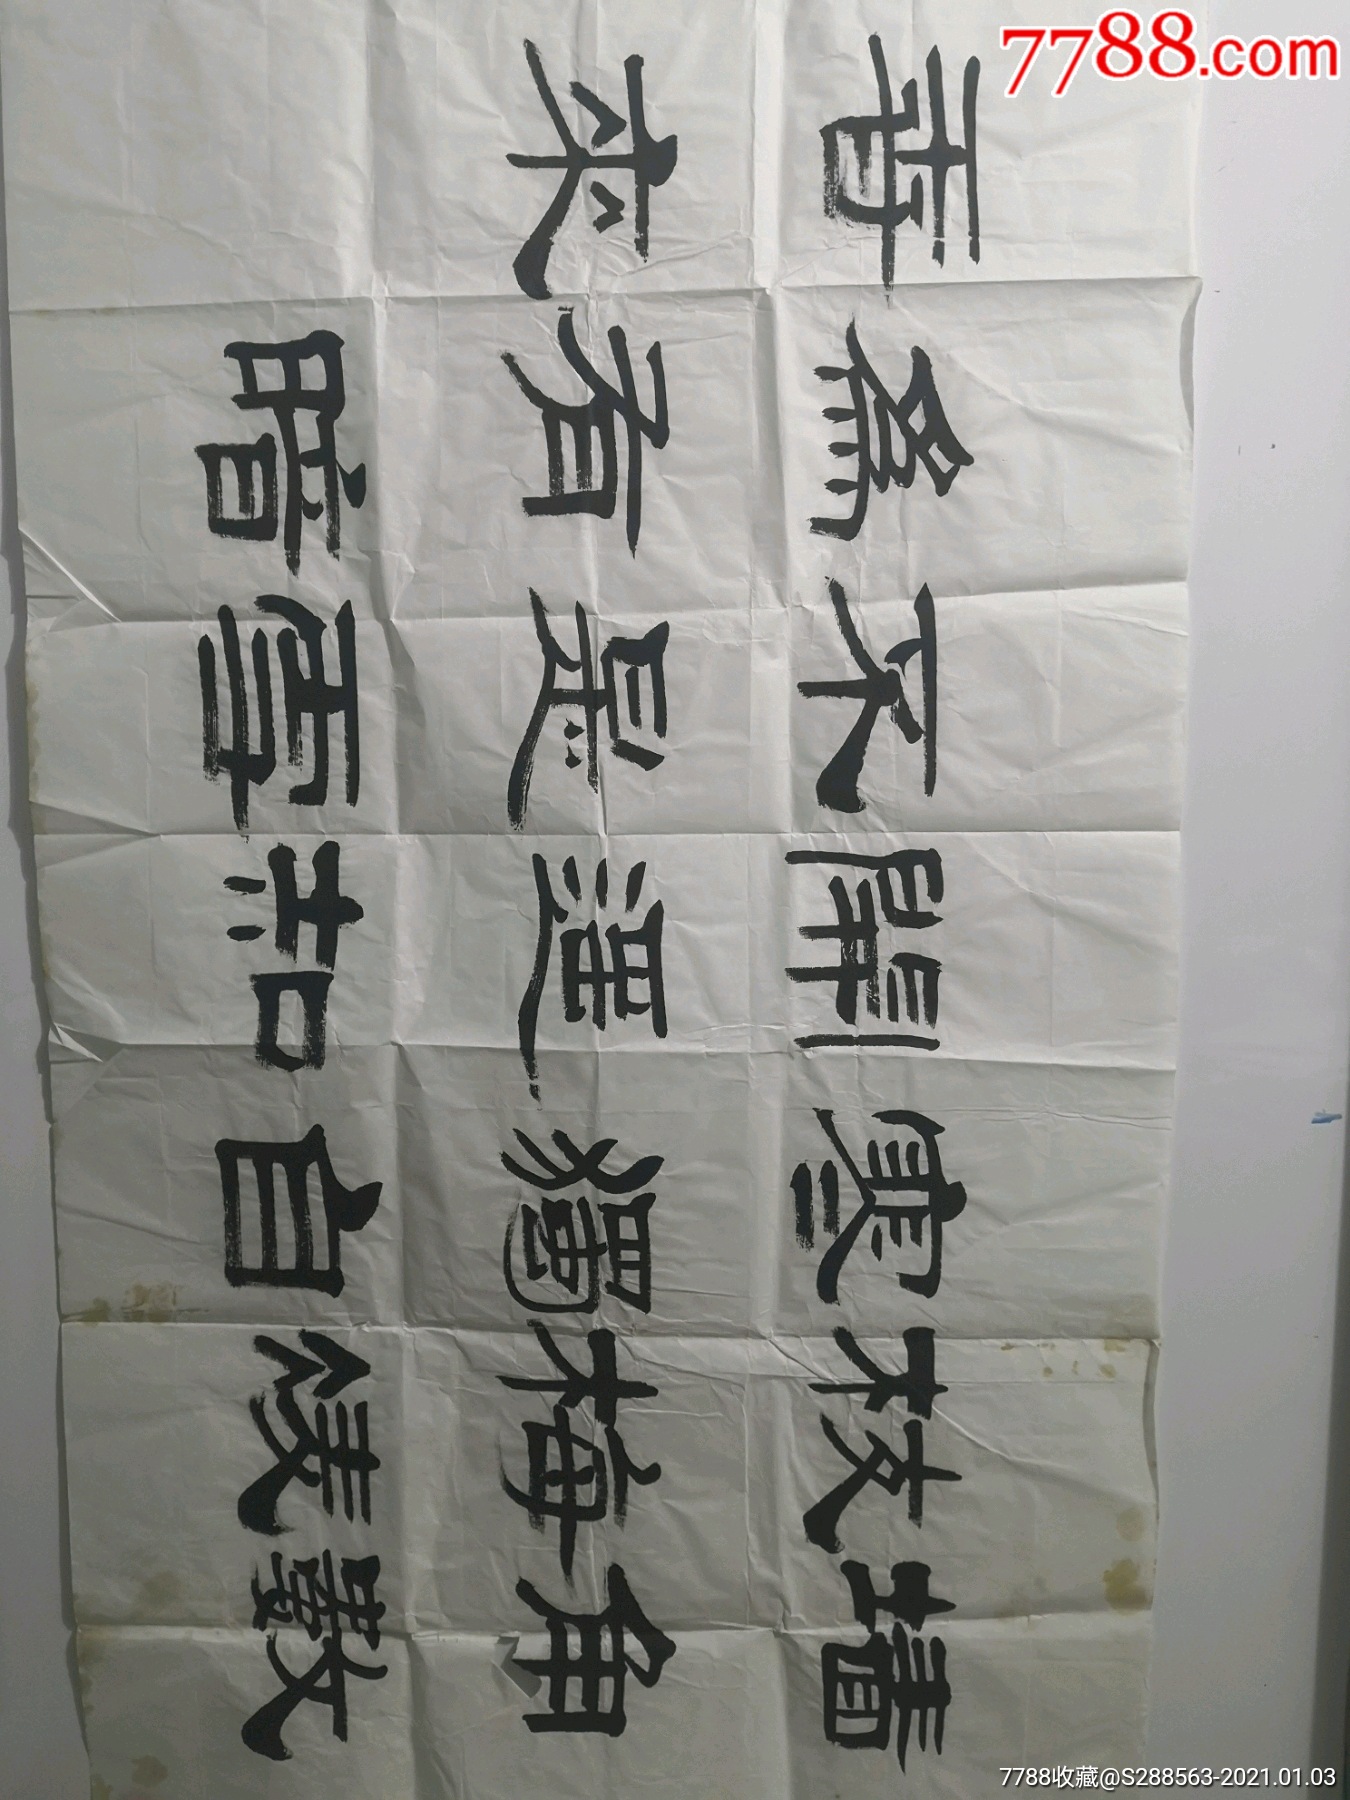 墻角數
枝梅凌
寒獨自
開遥知
不是雪
為有暗
香來
7788.com
7788收藏@S288563-2021.01.03